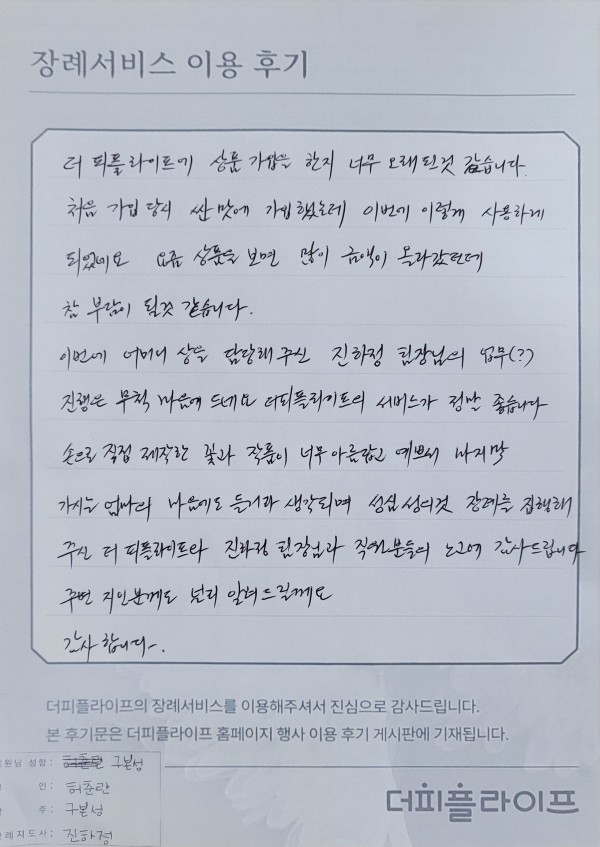 장례서비스 이용 후기
더 피플라이프에 상품 가입을 한지 너무 오래된것 같습니다.
처음 가입 당시 싼맛에 가입했는데 이번에 이렇게 사용하게
되었네요 요즘 상품을 보면 많이 금액이 올라갔던데
참 부담이 될것 같습니다.
이번에 어머니 상을 담당해주신 진하정 팀장님의 업무(?)
진행은 무척 마음에 드네요 더피플라이프의 서비스가 정말 좋습니다
손으로 직접 제작한 꽃과 작품이 너무 아름답고 예쁘서 마지막
가시는 엄마의 마음에도 들거라 생각되며 성심성의것 장례를 집행해
주신 더 피플라이프와 진하정 팀장님과 직원분들의 노고에 감사드립니다
주변 지인분께도 널리 알려드릴께요
감사합니다~.
더피플라이프의 장례서비스를 이용해주셔서 진심으로 감사드립니다.
본 후기문은 더피플라이프 홈페이지 행사 이용 후기 게시판에 기재됩니다.
원님 성함: 허춘란 구본성
인: 허춘란
주: 구본성
례지도사: 진하정
더피플라이프